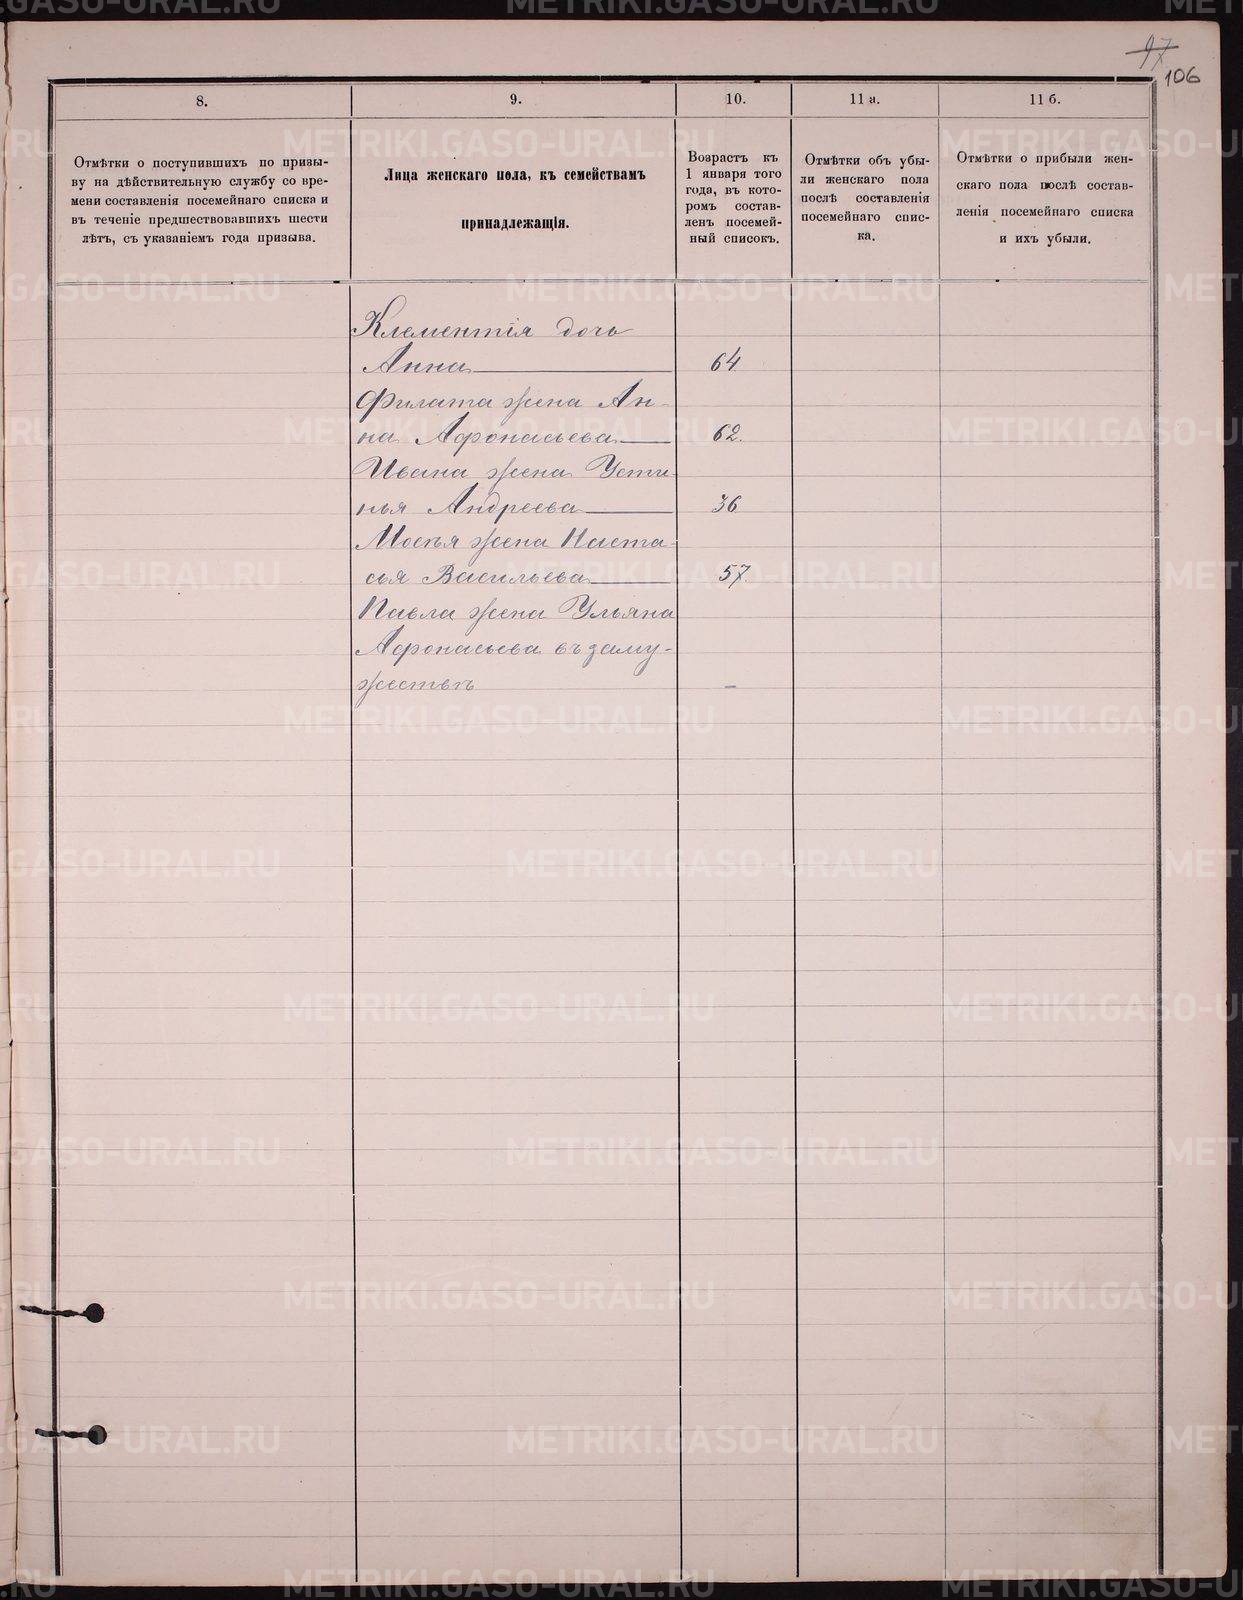 97
106
8.
9.
10.
11 а.
11 б.
Отмѣтки о поступившихъ по призы-
ву на дѣйствительную службу со вре-
мени составленія посемейнаго списка и
въ теченіе предшествовавшихъ шести
лѣтъ, съ указаніемъ года призыва.
Лица женскаго пола, къ семействамъ
принадлежащія.
Возрастъ къ
1 января того
года, въ кото-
ромъ состав-
ленъ посемей-
ный списокъ.
Отмѣтки объ убы-
ли женскаго пола
послѣ составленія
посемейнаго спис-
ка.
Отмѣтки о прибыли жен-
скаго пола послѣ состав-
ленія посемейнаго списка
и ихъ убыли.
Клементія дочь
Анна 64
Филата жена Ан-
на Афонасьева 62.
Ивана жена Усти
нья Андреева 36
Мосѣя жена Наста-
сья Васильева 57.
Павла жена Ульяна
Афонасьева въ заму-
жествѣ –
METRIKI.GASO-URAL.RU